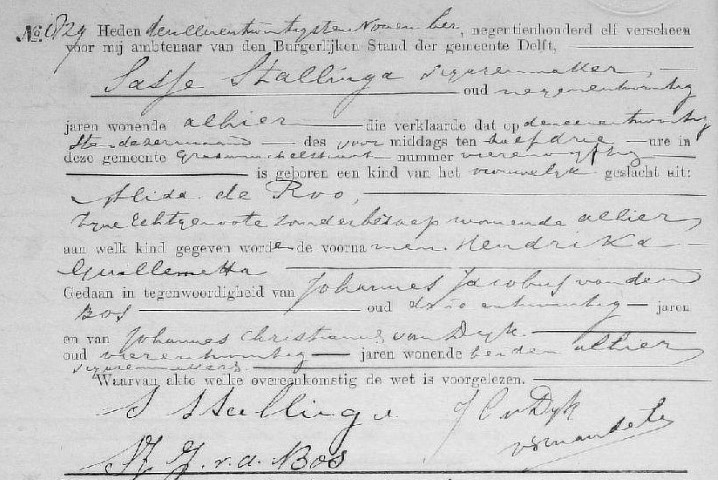 No. 829 Heden den een en twintigsten November, negentienhonderd elf verscheen
voor mij ambtenaar van den Burgerlijken Stand der gemeente Delft,
Sasse Stallinga sigarenmaker,
oud negenentwintig
jaren wonende alhier die verklaarde dat op den eenentwintig
sten dezer maand des voor middags ten half drie ure in
deze gemeente nummer vierenvijftig
is geboren een kind van het vrouwelijk geslacht uit:
Alida de Roo,
zijne Echtgenoote zonder beroep wonende alhier
aan welk kind gegeven worden de voorna men Hendrika
Guillemetta
Gedaan in tegenwoordigheid van Johannes Jacobus van den
Bos oud drie entwintig jaren
en van Johannes Christianus van Dyk.
oud vierentwintig jaren wonende beiden alhier
sigarenmakers
Waarvan akte welke overeenkomstig de wet is voorgelezen.
S Stallinga J C v Dyk
J. J. v. d. Bos